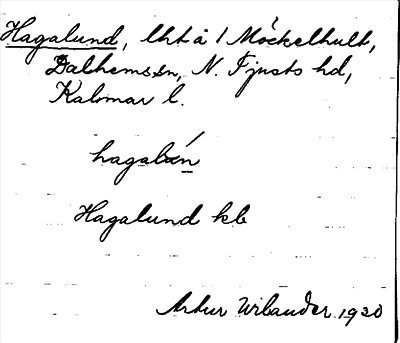 Hagalund, lht å 1 Möckelhult,
Dalhems sn, N. Tjusts hd,
Kalmar l.
hagalún
Hagalund kb
Artur Wilander 1920